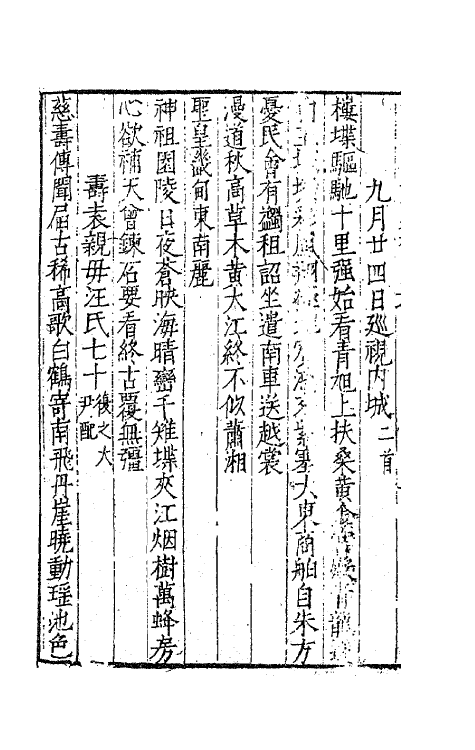 九月廿四日巡視内城二首
樓堞驅馳十里強始看青旭上扶桑黃金
塞大東商舶自朱方
憂民會有蠲租詔坐遣南車送越裳
漫道秋高草木黃大江終不似蕭湘
聖皇畿甸東南麗
神祖園陵日夜蒼映海晴巒千雉堞夾江烟樹萬蜂房
心欲補天曾鍊石要看終古覆無疆
壽袁親毋汪氏七十復之大尹配
慈壽傳聞屆古稀高歌白鶴嵜南飛丹崖曉動瑶池色